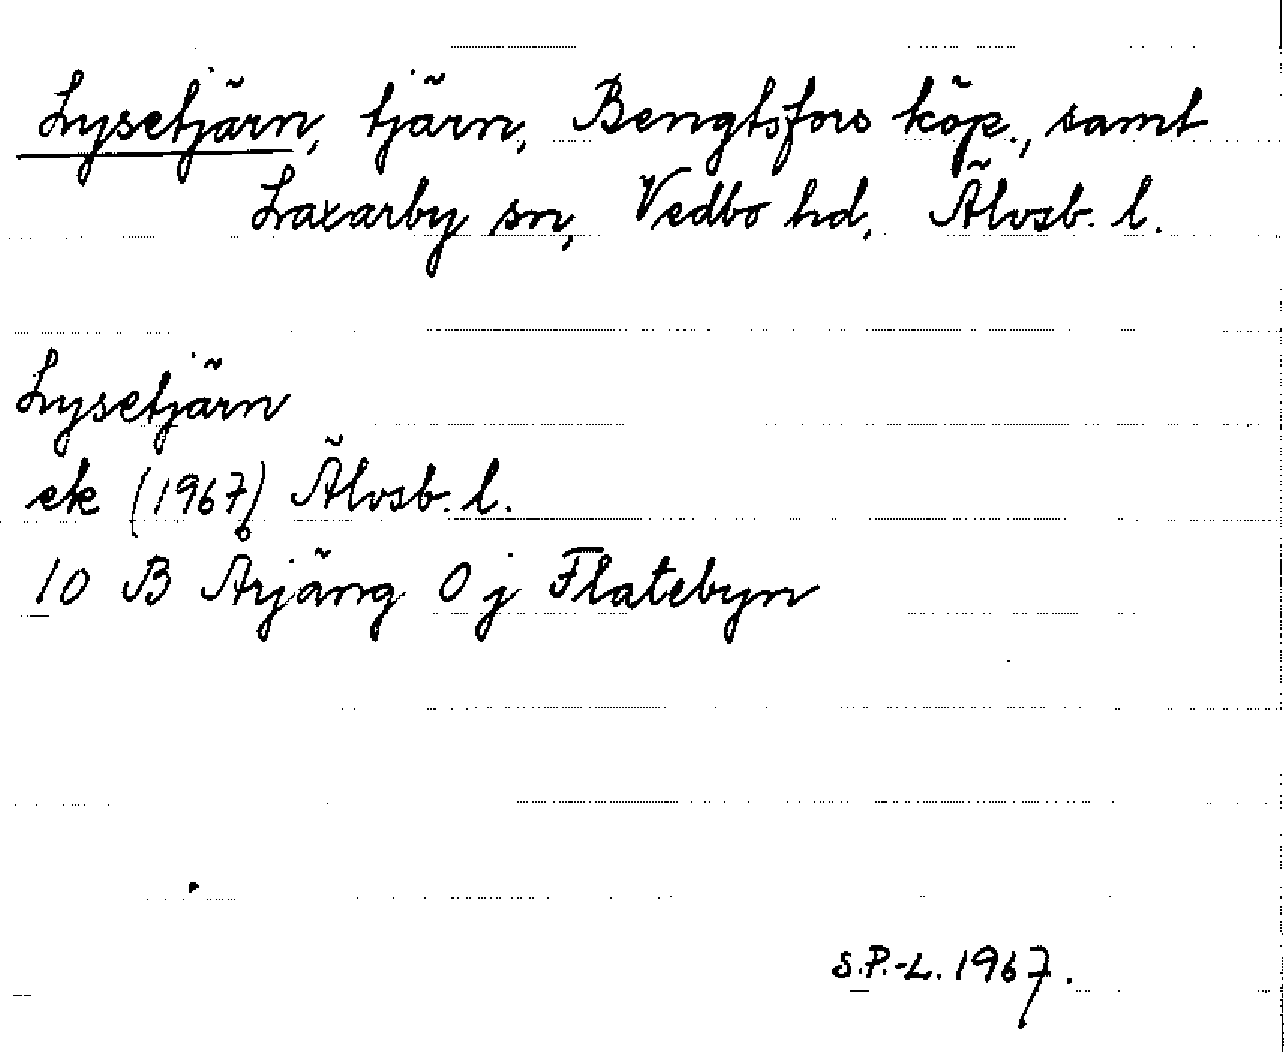 Lysetjärn, tjärn, Bengtsfors köp., samt
Laxarby sn, Vedbo hd, Älvsb. l.
Lysetjärn
ek (1967) Älvsb. l.
10 B Arjäng 0 j Flatebyn
S.P.-L. 1967.